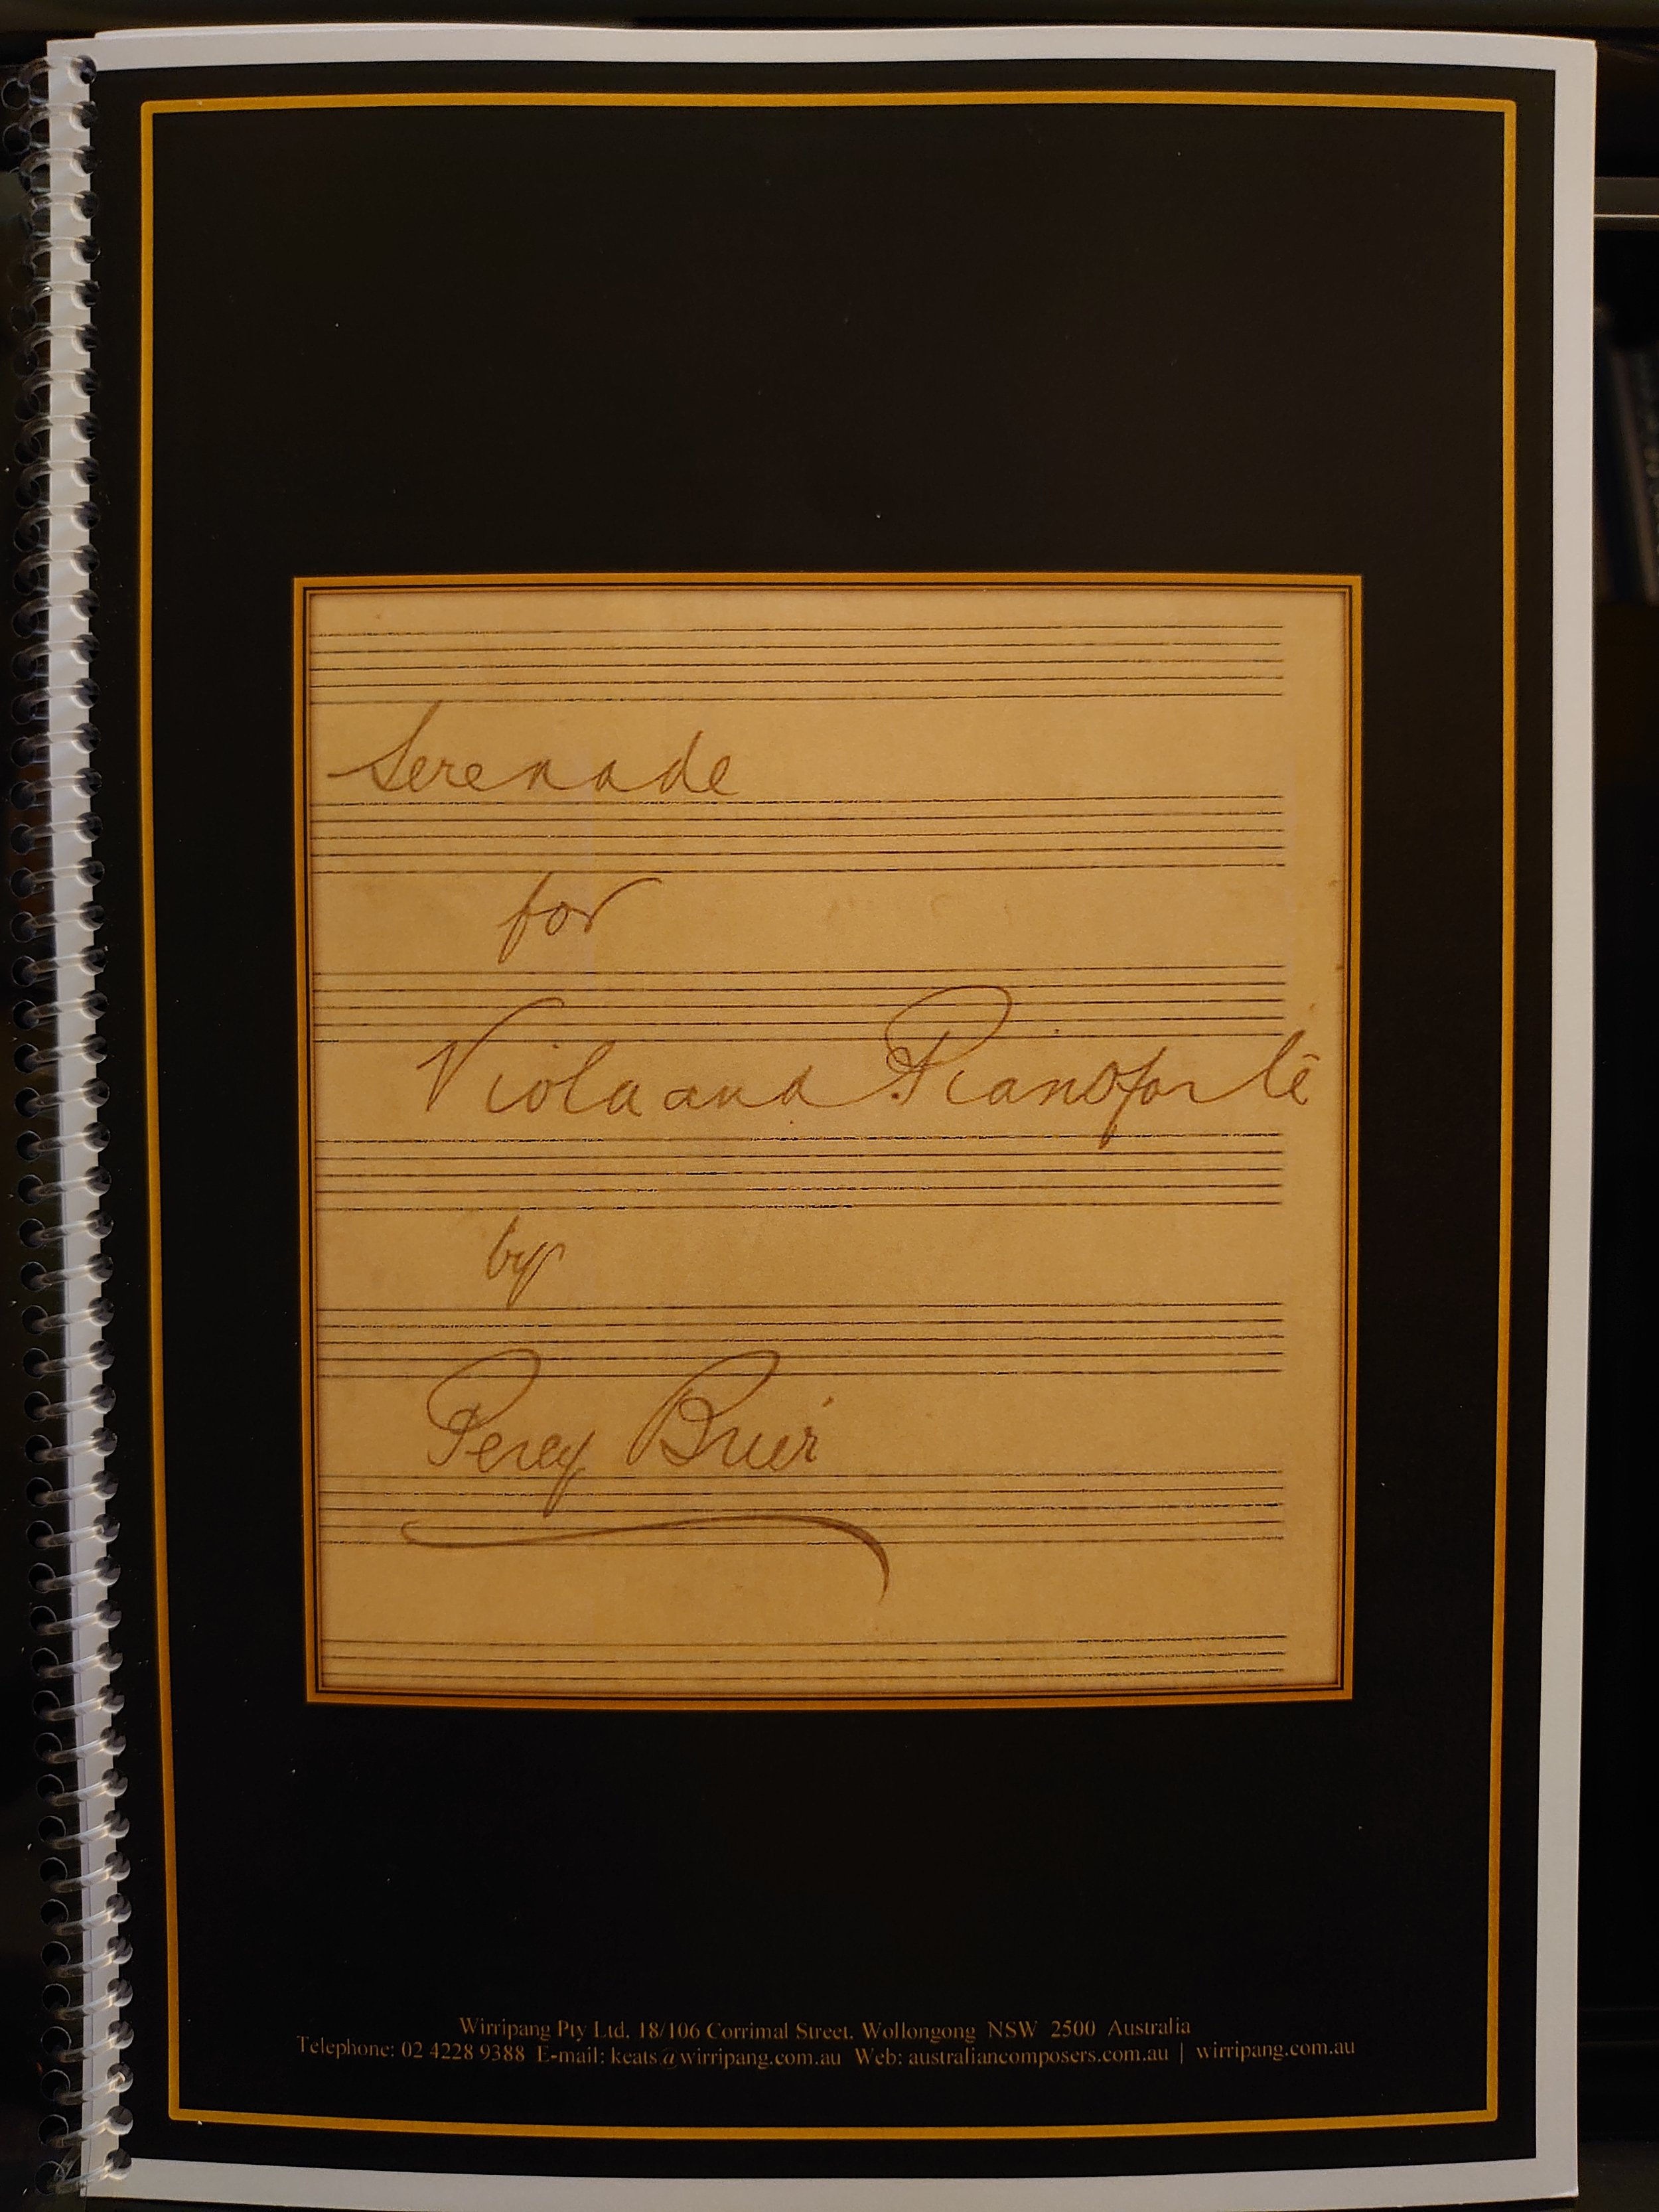 Serenade
for
Viola and Pianoforte
by
Percy Brier
Wirripang Pty Ltd. 18/106 Corrimal Street. Wollongong NSW 2500 Australia
Telephone: 02 4228 9388 E-mail: keats@wirripang.com.au Web: australiancomposers.com.au | wirripang.com.au